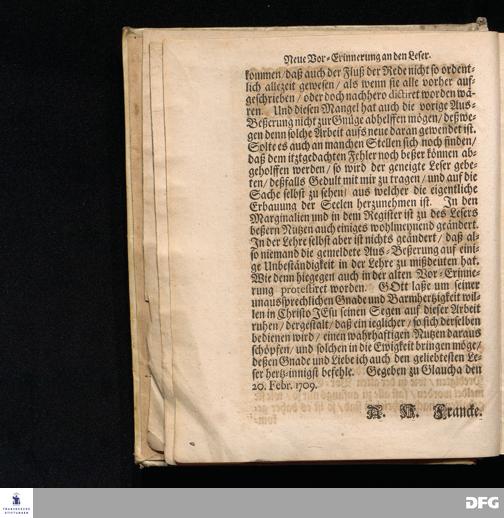 Neue Vor-Erinnerung an den Leser.
kommen/ daß auch der Fluß der Rede nicht so ordent-
lich allezeit gewesen/ als wenn sie alle vorher auf-
geschrieben/ oder doch nachhero dictiret worden wä-
ren. Und diesen Mangel hat auch die vorige Aus-
Beßerung nicht zur Gnüge abhelffen mögen/ deßwe-
gen denn solche Arbeit aufs neue daran gewendet ist.
Solte es auch an manchen Stellen sich noch finden/
daß dem itztgedachten Fehler noch beßer können ab-
geholffen werden/ so wird der geneigte Leser gebe-
ten/ deßfalls Gedult mit mir zu tragen/ und auf die
Sache selbst zu sehen/ aus welcher die eigentliche
Erbauung der Seelen herzunehmen ist. In den
Marginalien und in dem Register ist zu des Lesers
beßern Nutzen auch einiges wohlmeynend geändert.
In der Lehre selbst aber ist nichts geändert/ daß al-
so niemand die gemeldete Aus-Beßerung auf eini-
ge Unbeständigkeit in der Lehre zu mißdeuten hat.
Wie denn hiegegen auch in der alten Vor-Erinne-
rung protestiret worden. GOtt laße um seiner
unaussprechlichen Gnade und Barmhertzigkeit wil-
len in Christo JEsu seinen Segen auf dieser Arbeit
ruhen/ dergestalt/ daß ein ieglicher/ so sich derselben
bedienen wird/ einen wahrhaftigen Nutzen daraus
schöpfen/ und solchen in die Ewigkeit bringen möge/
deßen Gnade und Liebe ich auch den geliebtesten Le-
ser hertz-innigst befehle. Gegeben zu Glaucha den
20. Febr. 1709.
A. H. Francke.
FRANCKESCHE
STIFTUNGEN
DFG